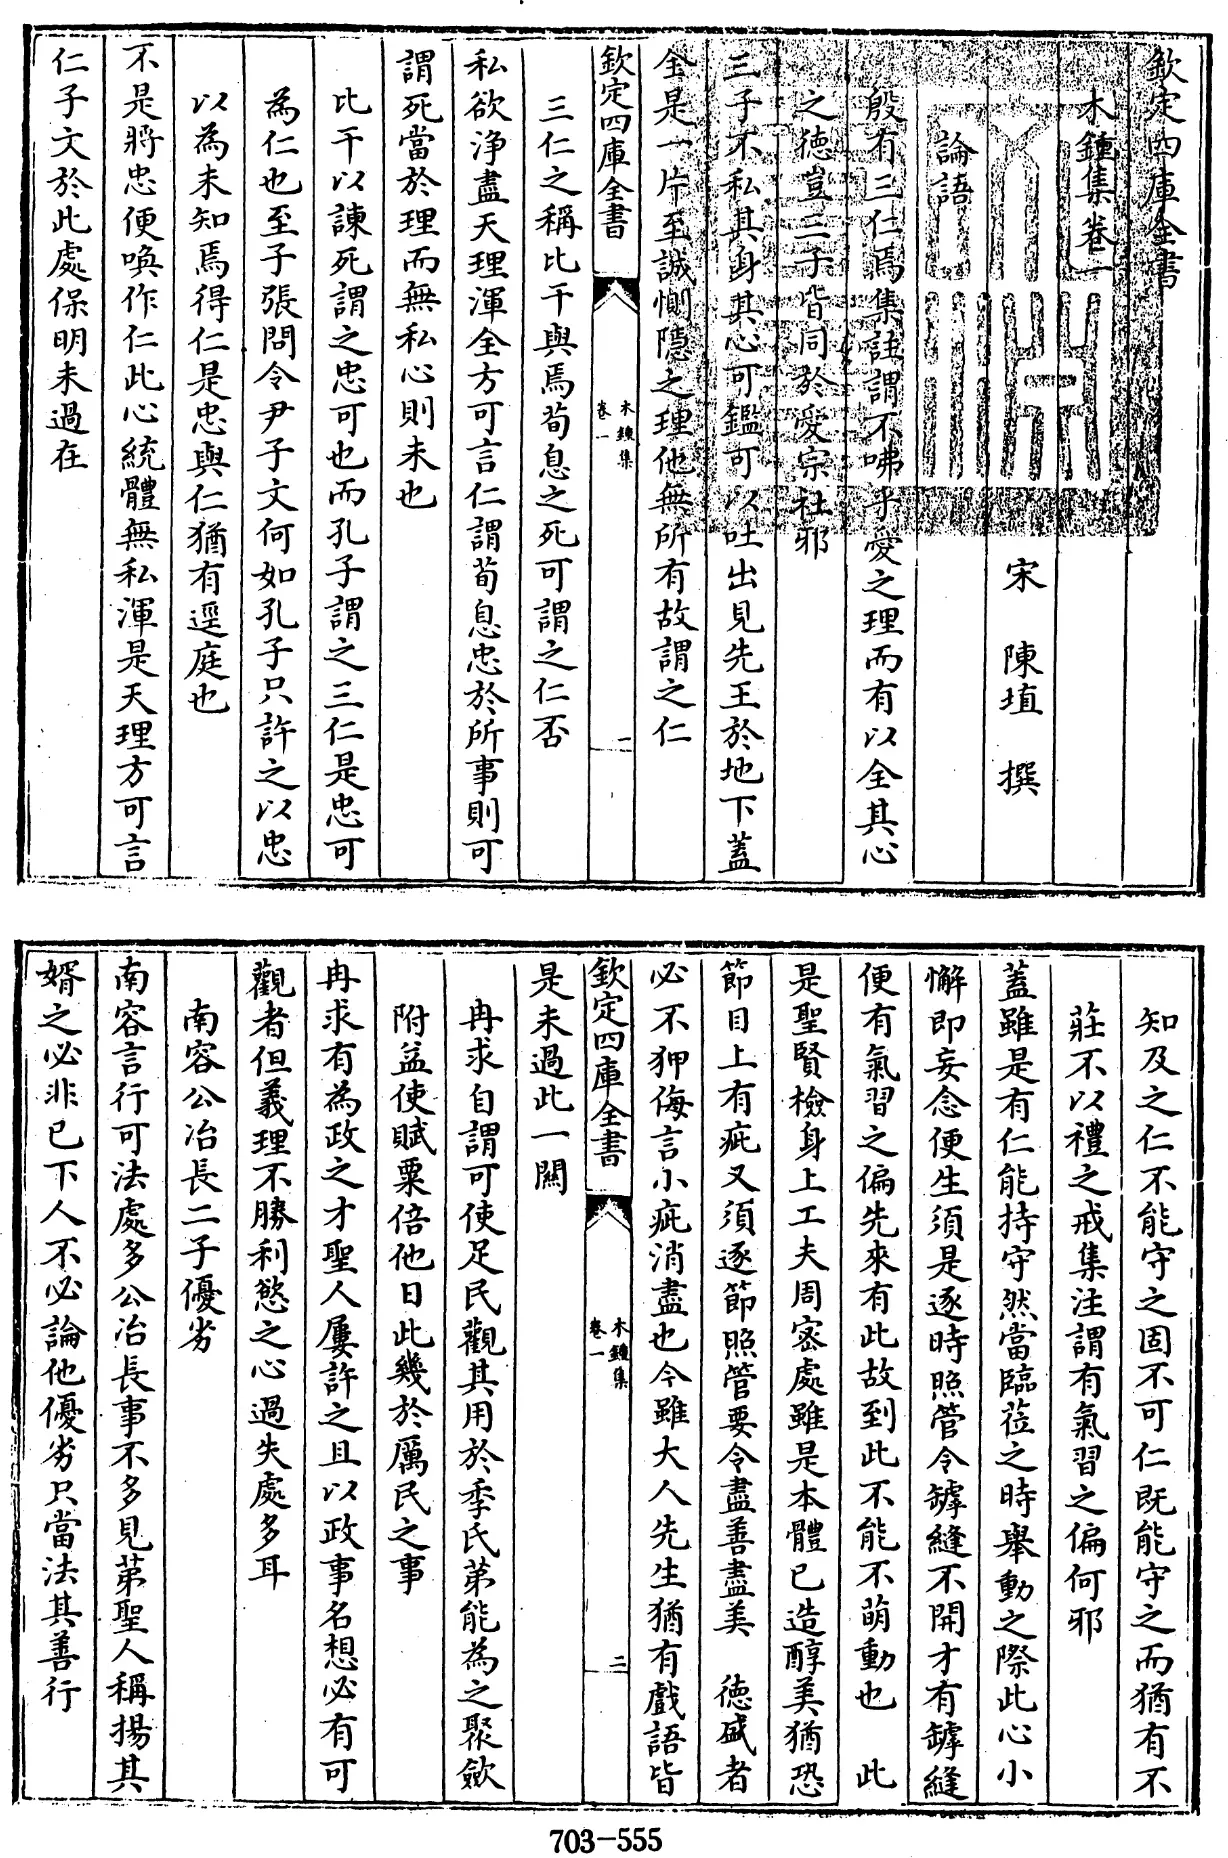 欽定四庫全書
木鍾集卷一
宋 陳埴 撰
論語
殷有三仁焉集註謂不咈乎愛之理而有以全其心
之德豈三子皆同於愛宗社邪
三子不私其身其心可鑑可以吐出見先王於地下蓋
全是一片至誠惻隱之理他無所有故謂之仁
欽定四庫全書
木鍾集
卷一
一
三仁之稱比干與焉荀息之死可謂之仁否
私欲淨盡天理渾全方可言仁謂荀息忠於所事則可
謂死當於理而無私心則未也
比干以諫死謂之忠可也而孔子謂之三仁是忠可
為仁也至子張問令尹子文何如孔子只許之以忠
以為未知焉得仁是忠與仁猶有逕庭也
不是將忠便喚作仁此心統體無私渾是天理方可言
仁子文於此處保明未過在
知及之仁不能守之固不可仁既能守之而猶有不
莊不以禮之戒集注謂有氣習之偏何邪
蓋雖是有仁能持守然當臨莅之時舉動之際此心小
懈即妄念便生須是逐時照管令罅縫不開才有罅縫
便有氣習之偏先來有此故到此不能不萌動也 此
是聖賢檢身上工夫周密處雖是本體已造醇美猶恐
節目上有疵又須逐節照管要令盡善盡美 德盛者
必不狎侮言小疵消盡也今雖大人先生猶有戲語皆
欽定四庫全書
木鍾集
卷一
二
是未過此一關
冉求自謂可使足民觀其用於季氏第能為之聚斂
附益使賦粟倍他日此幾於厲民之事
冉求有為政之才聖人屢許之且以政事名想必有可
觀者但義理不勝利慾之心過失處多耳
南容公冶長二子優劣
南容言行可法處多公冶長事不多見苐聖人稱揚其
婿之必非已下人不必論他優劣只當法其善行
703-555